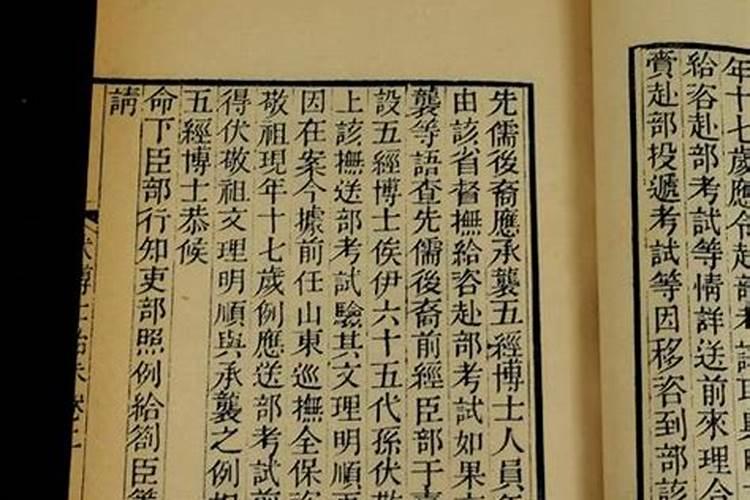 年十七歲應令赴部考試
給咨赴部考試等情詳送前來理合
賫赴部投遞考試等因移咨到部該
先儒後裔應承襲五經博士人員年
由該省督撫給咨赴部考試如果文
襲等語查先儒後裔前經臣部于
設五經博士俟伊六十五代孫伏敬
上該撫送部考試驗其文理明順
因在案今據前任山東巡撫全保
敬祖現年十七歲例應送部考試前
得伏敬祖文理明順與承襲之例相
五經博士恭候
命下臣部行知吏部照例給劄臣等
請